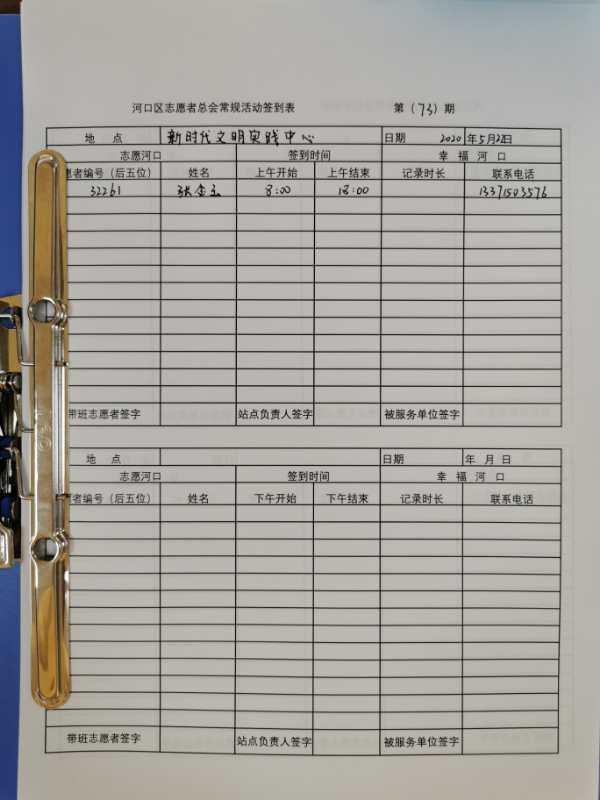 河口区志愿者总会常规活动签到表 第(73)期
地 点 新时代文明实践中心 日期 2020年5月22日
志愿河口 签到时间 幸 福 河 口
愿者编号(后五位) 姓名 上午开始 上午结束 记录时长 联系电话
32261 8:00 18:00 13371503576
带班志愿者签字 站点负责人签字 被服务单位签字
地 点 日期 年 月 日
志愿河口 签到时间 幸 福 河 口
愿者编号(后五位) 姓名 下午开始 下午结束 记录时长 联系电话
带班志愿者签字 站点负责人签字 被服务单位签字